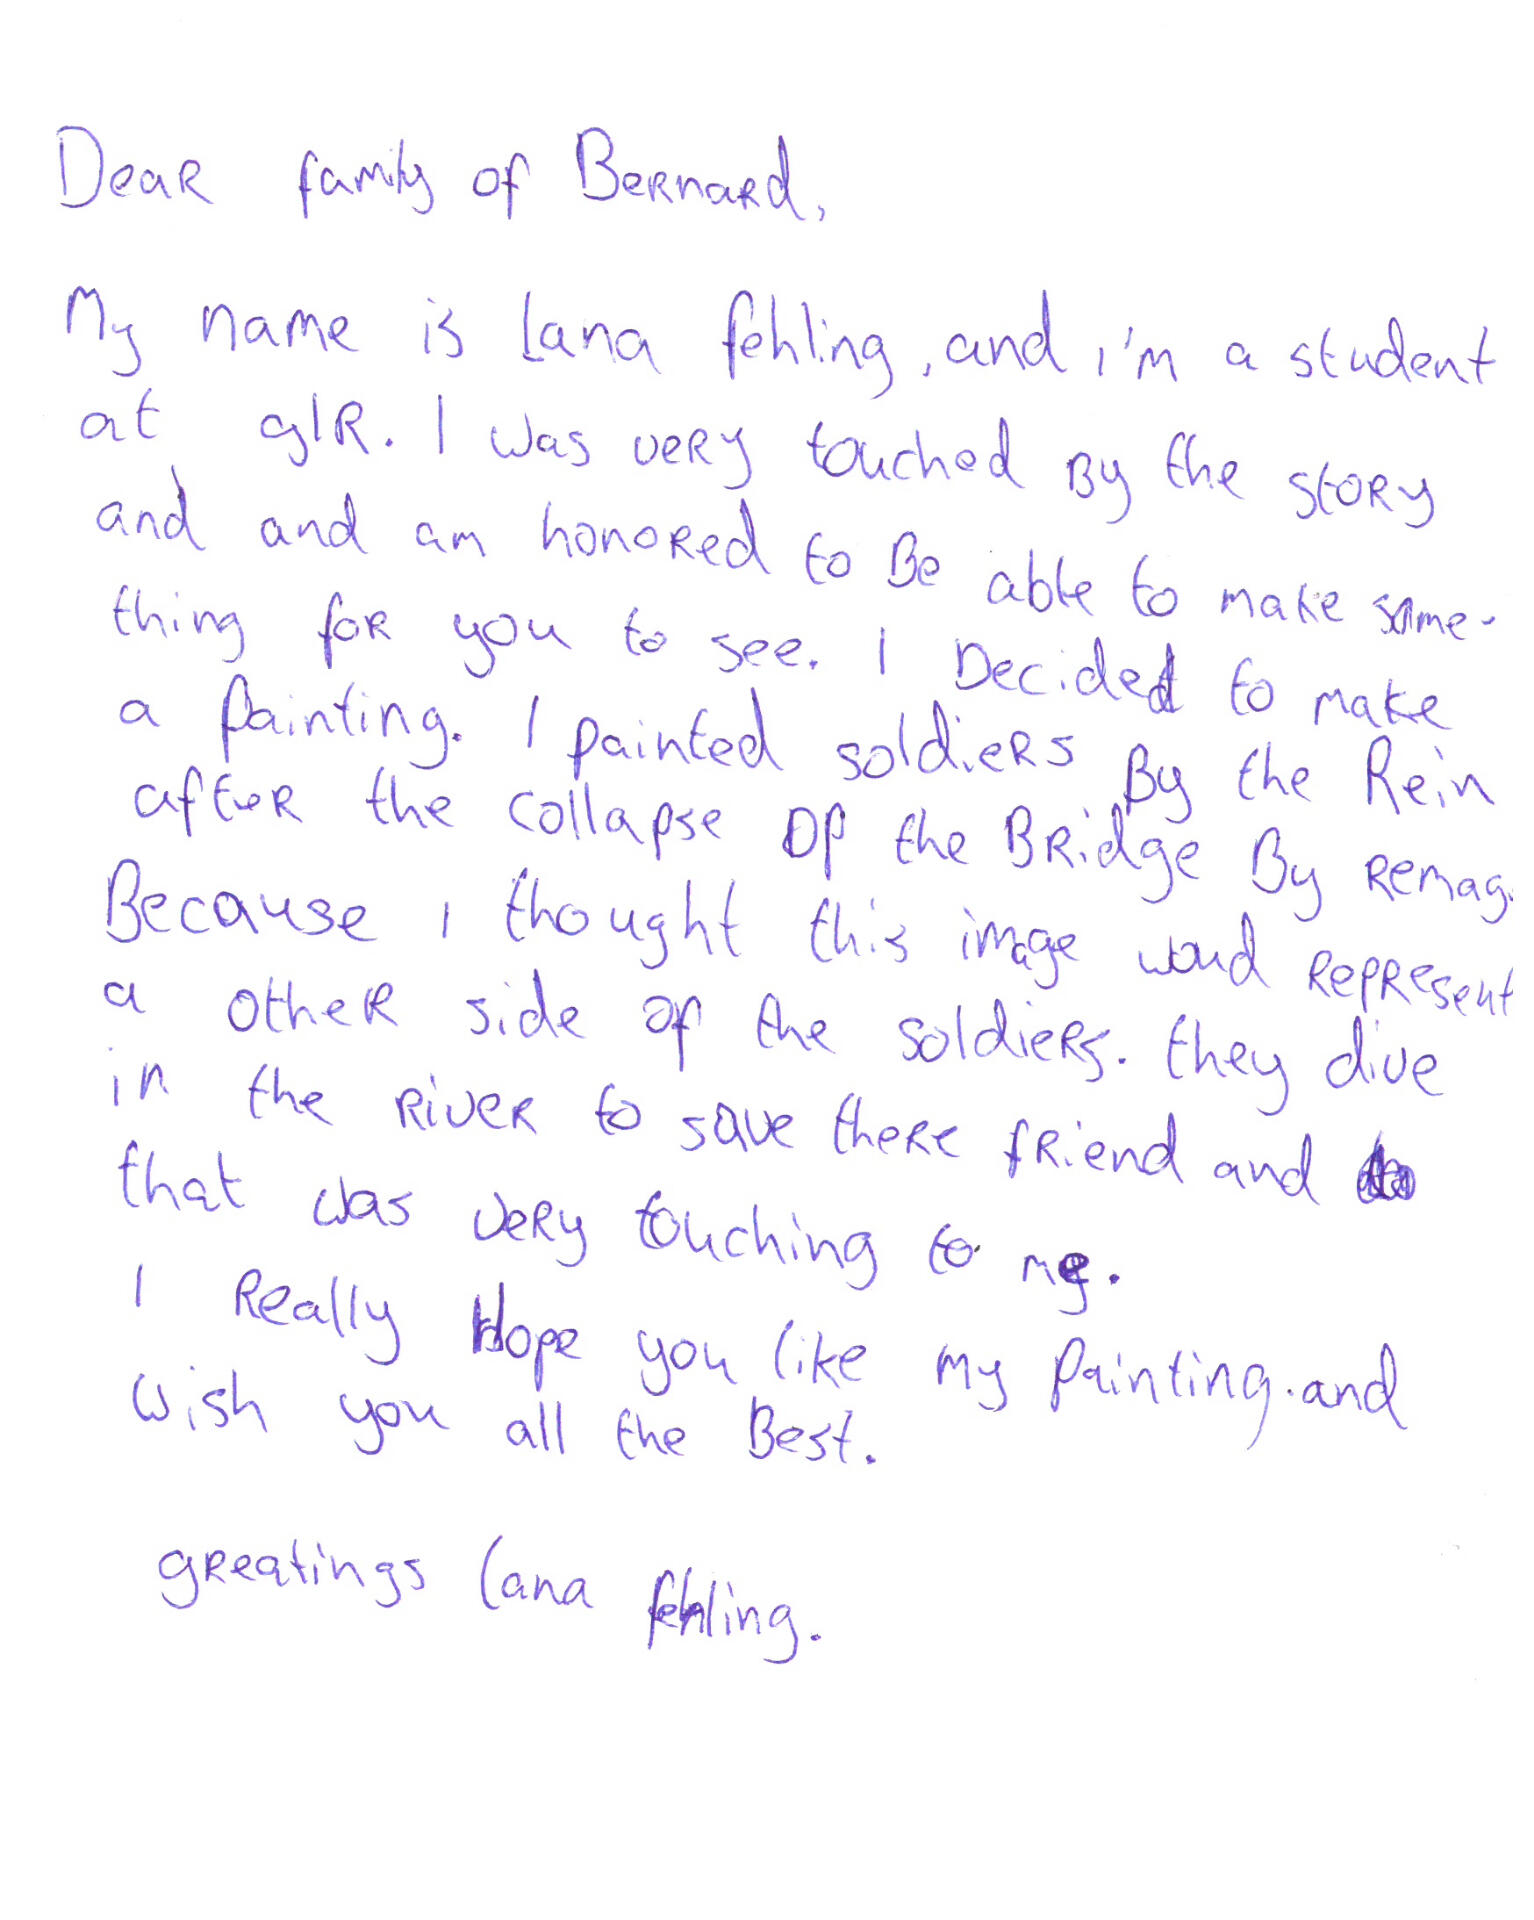 Dear family of Bernard,
My name is Lana fehling, and i'm a student
at glR. I was very touched By the story
and and am honored to Be able to make some-
thing for you to see. I Decided to make
a painting. I painted soldiers By the Rein
after the collapse Of the Bridge By Remag.
Because i thought this image woud Represent
a other side of the soldiers. they dive
in the River to save there friend and
that was very touching to me.
I Really Hope you like my Painting. and
Wish you all the Best.
greatings Lana fehling.